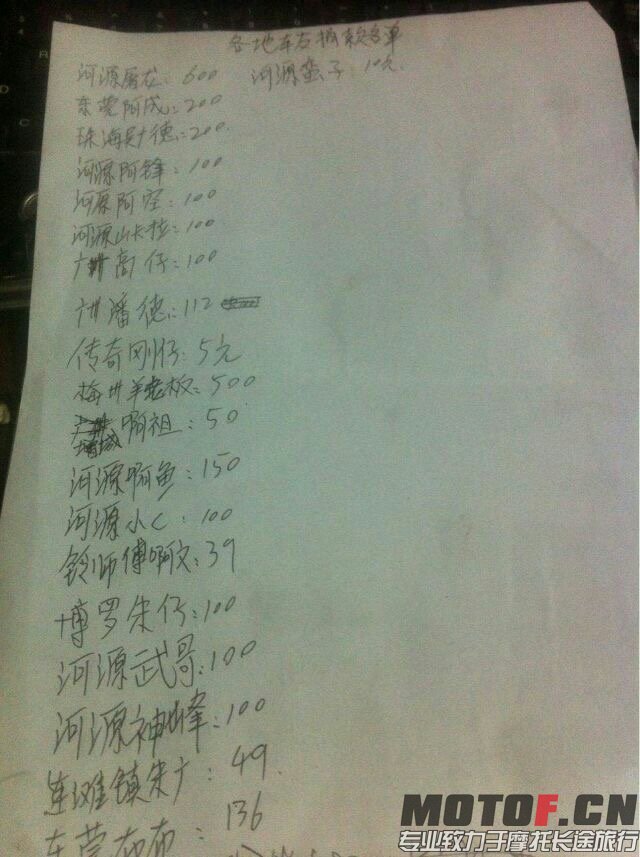 各地车友捐款名单
河源屠龙：600 河源蛮子：10元
东莞阿成：200
珠海财德：200
河源阿锋：100
河源阿空：100
河源山卡拉：100
广州高仔：100
广州潘德：112
传奇刚仔：5元
梅州羊老板：500
增城啊祖：50
河源啊鱼：150
河源小C：100
铃师傅啊文：39
博罗朱仔：100
河源武哥：100
河源神峰：100
连滩镇朱广：49
东莞布布：136
MOTOF.CN
专业致力于摩托长途旅行